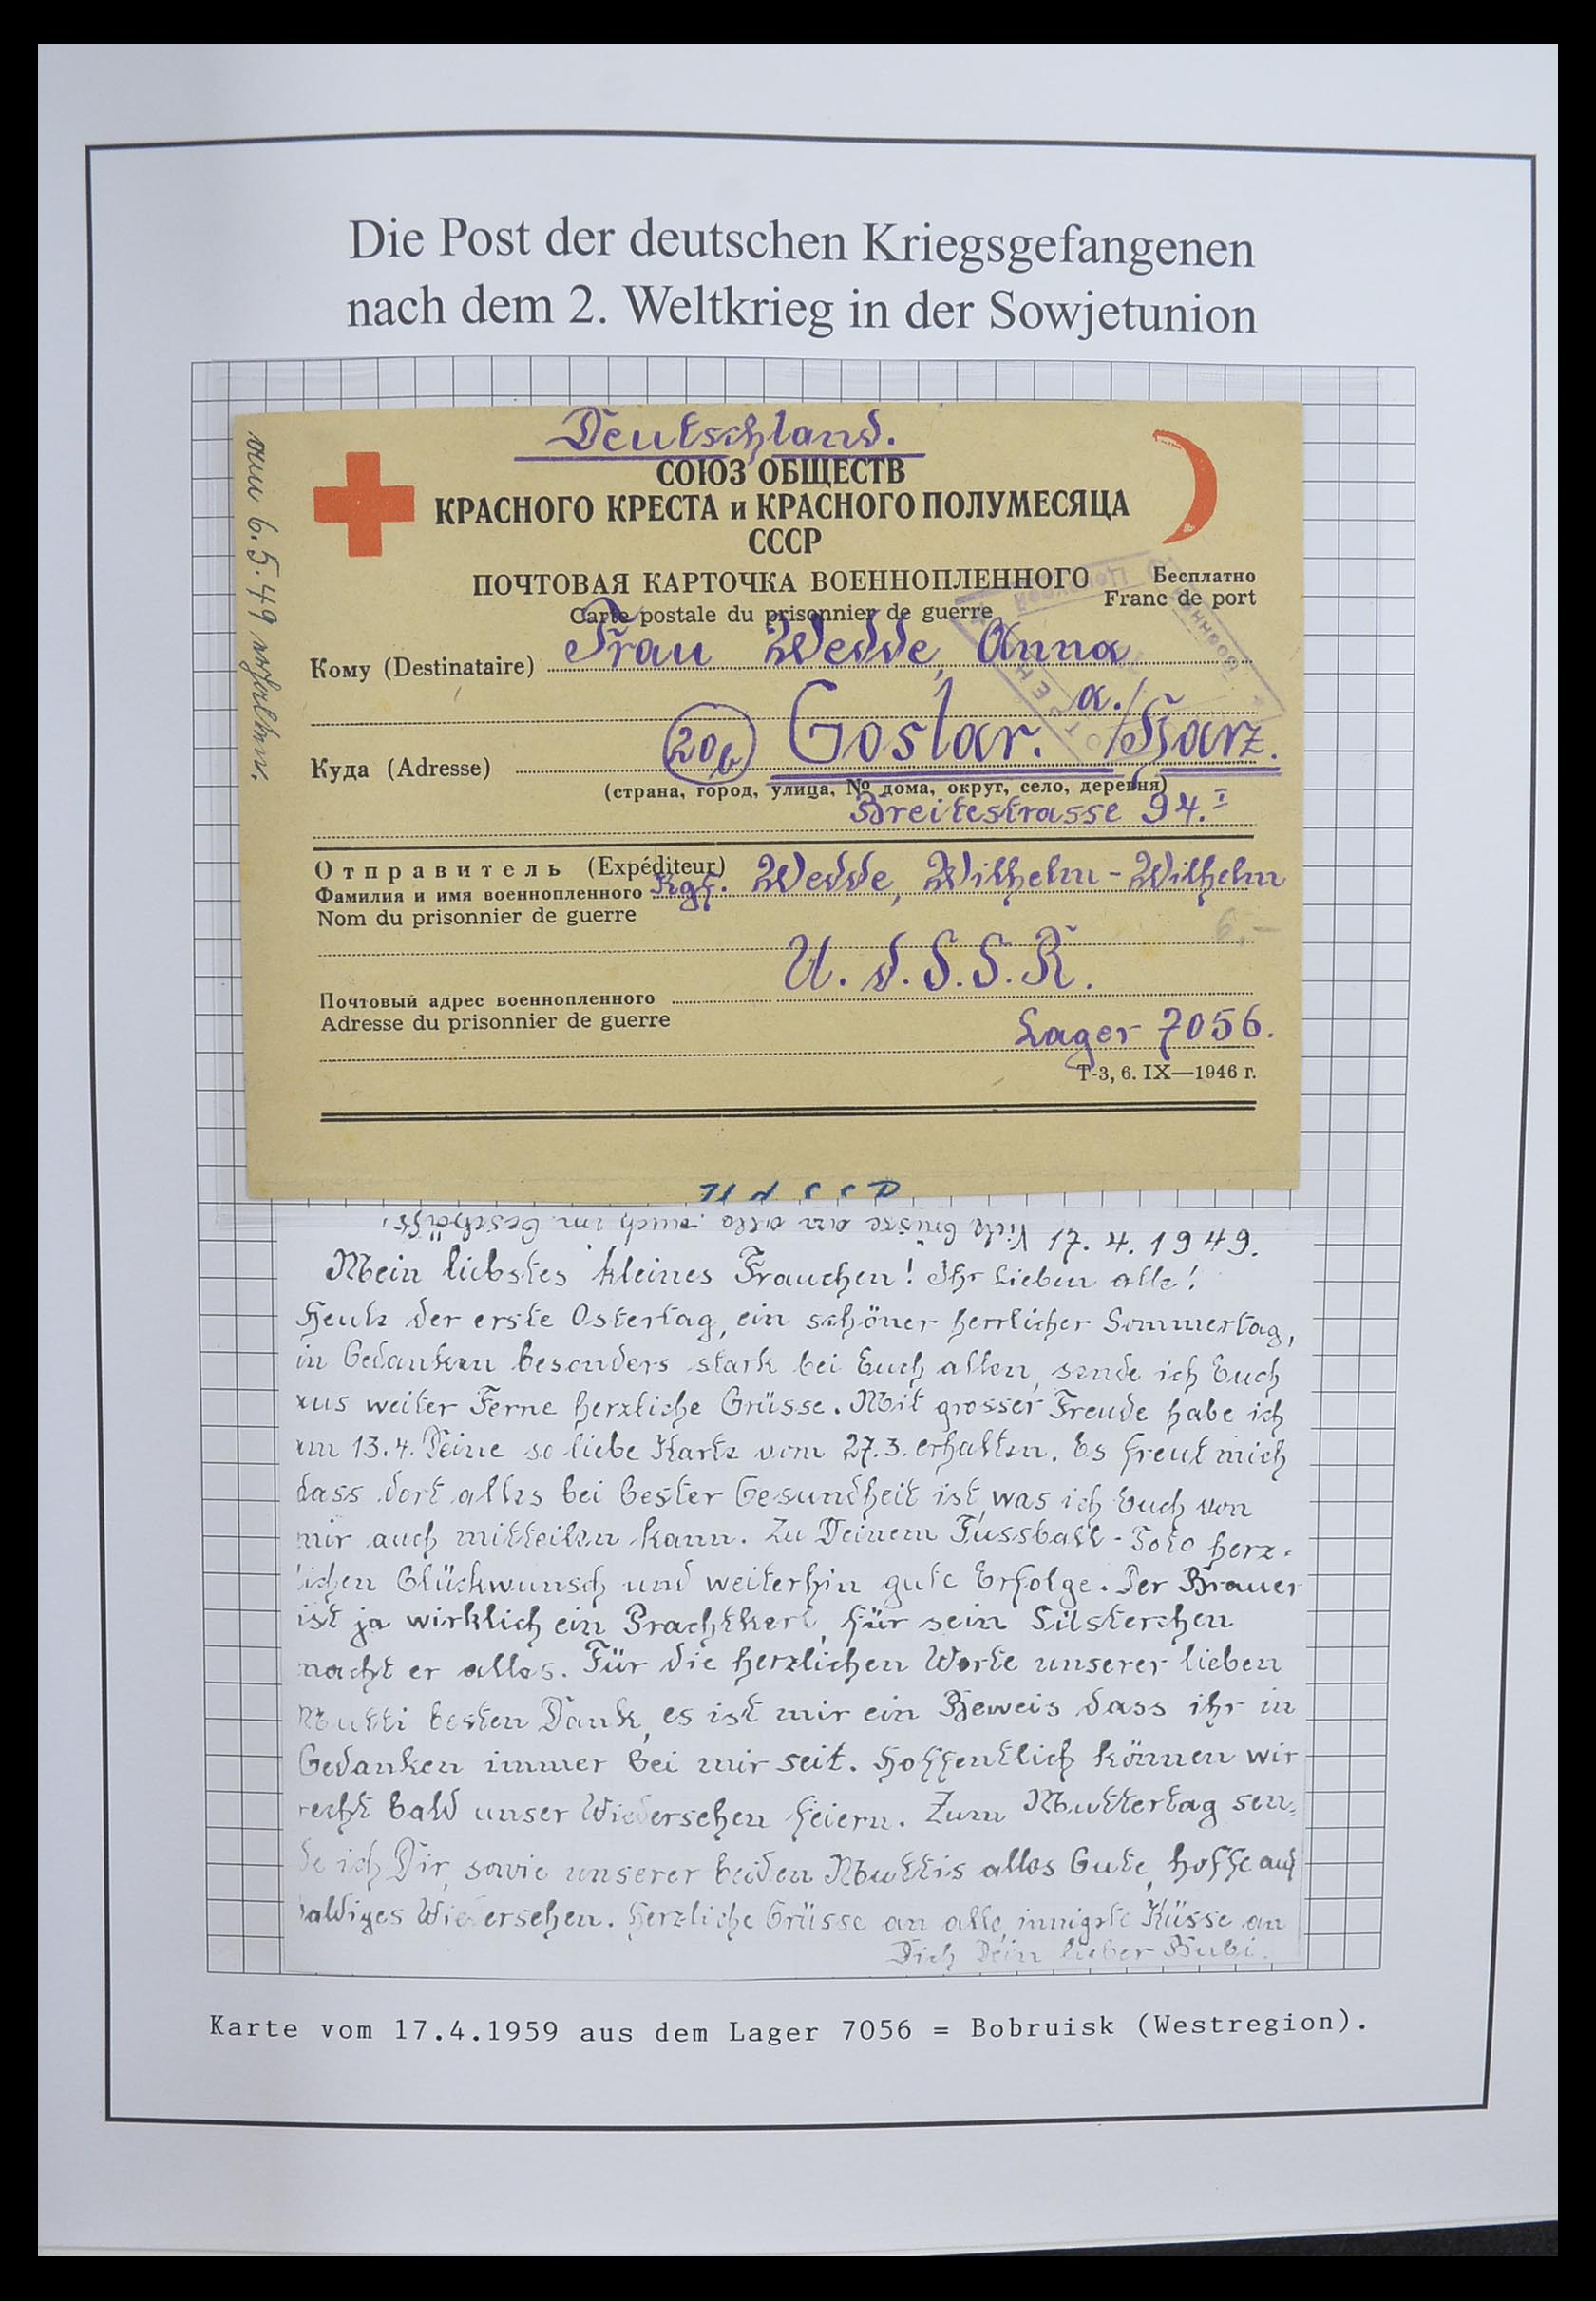 Die Post der deutschen Kriegsgefangenen
nach dem 2. Weltkrieg in der Sowjetunion
Deutschland.
СОЮЗ ОБЩЕСТВ
КРАСНОГО КРЕСТА и КРАСНОГО ПОЛУМЕСЯЦА
СССР
ПОЧТОВАЯ КАРТОЧКА ВОЕННОПЛЕННОГО
Бесплатно
Carte postale du prisonnier de guerre
Franc de port
am 6.5.49 erhalten.
Кому (Destinataire) Frau Wedde, Anna
Куда (Adresse) 20b Goslar. a./Harz.
(страна, город, улица, № дома, округ, село, деревня)
Breitestrasse 94. I
Отправитель (Expéditeur)
Фамилия и имя военнопленного Kgf. Wedde, Wilhelm-Wilhelm
Nom du prisonnier de guerre
6.-
U.d.S.S.R.
Почтовый адрес военнопленного
Adresse du prisonnier de guerre
Lager 7056.
Т-3, 6. IX—1946 г.
Viele Grüsse an alle auch im Geschäft.
17.4.1949.
Mein liebstes kleines Frauchen! Ihr Lieben alle!
Heute der erste Ostertag, ein schöner herrlicher Sommertag,
in Gedanken besonders stark bei Euch allen, sende ich Euch
aus weiter Ferne herzliche Grüsse. Mit grosser Freude habe ich
am 13.4. Deine so liebe Karte vom 27.3. erhalten. Es freut mich
dass dort alles bei bester Gesundheit ist, was ich Euch von
mir auch mitteilen kann. Zu Deinem Fussball-Toto herz-
lichen Glückwunsch und weiterhin gute Erfolge. Der Brauer
ist ja wirklich ein Prachtkerl, für sein
macht er alles. Für die herzlichen Worte unserer lieben
Mutti besten Dank, es ist mir ein Beweis dass ihr in
Gedanken immer bei mir seit. Hoffentlich können wir
recht bald unser Wiedersehen feiern. Zum Muttertag sen=
de ich Dir, sowie unserer beiden Muttis alles Gute, hoffe auf
baldiges Wiedersehen. Herzliche Grüsse an alle, innigste Küsse an
Dich Dein lieber Bubi.
Karte vom 17.4.1959 aus dem Lager 7056 = Bobruisk (Westregion).